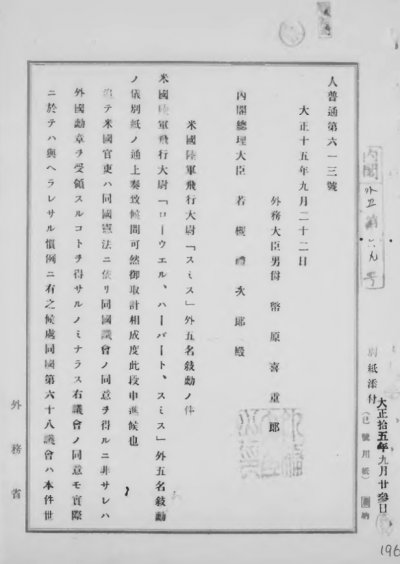 人普通第六一三號
大正十五年九月二十二日
外務大臣男爵 幣原喜重郎
內閣總理大臣 若槻禮次郎殿
米國陸軍飛行大尉「スミス」外五名敍勳ノ件
米國陸軍飛行大尉「ローウエル、ハーバート、スミス」外五名敍勳
ノ儀別紙ノ通上奏致候間可然御取計相成度此段申進候也
追テ米國官吏ハ同國憲法ニ依リ同國議會ノ同意ヲ得ルニ非サレハ
外國勳章ヲ受領スルコトヲ得サルノミナラス右議會ノ同意モ實際
ニ於テハ與ヘラレサル慣例ニ有之候處同國第六十八議會ハ本件世
別紙添付
大正拾五年九月廿參日
(己號用紙)
外務省
196